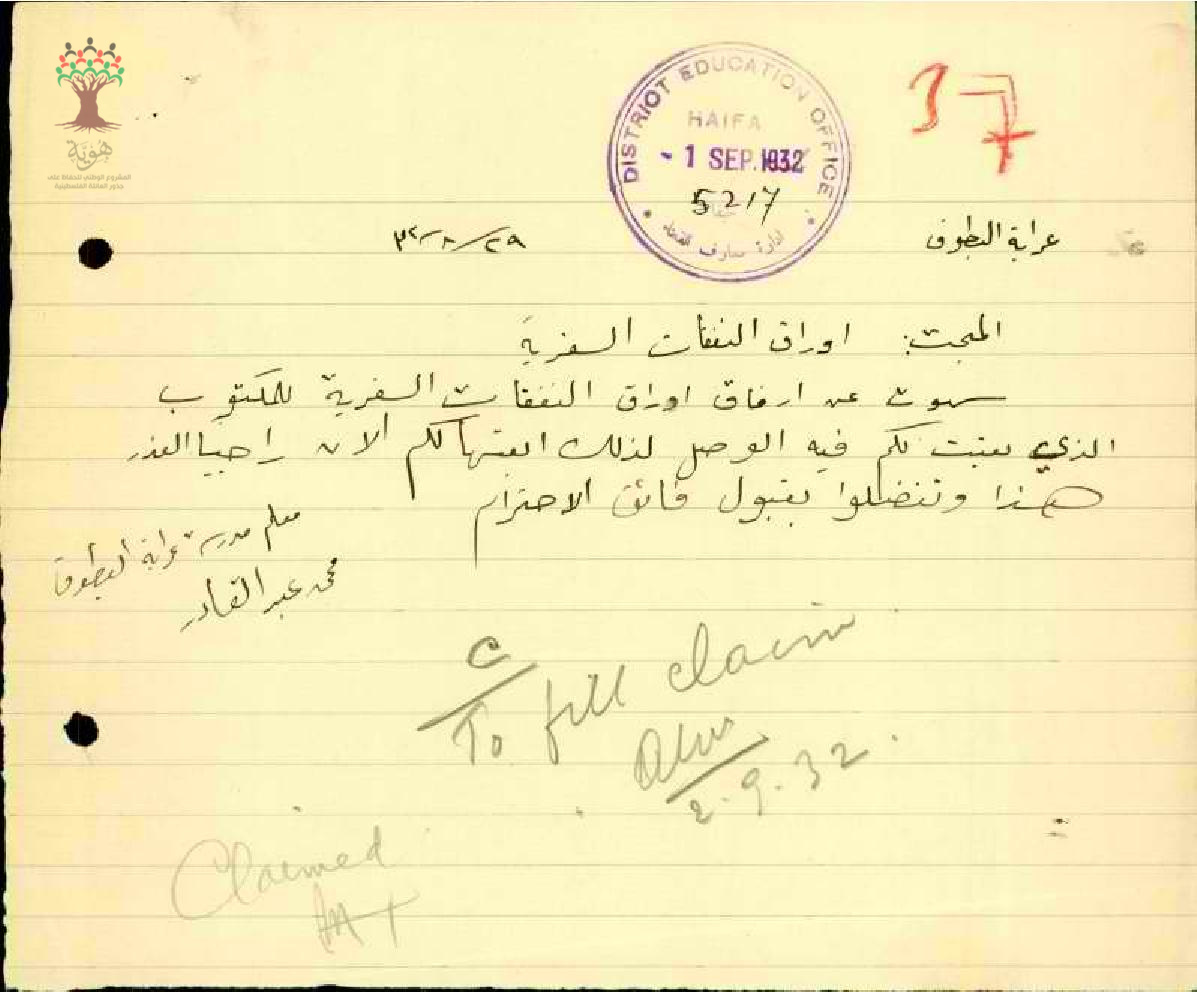 هوية
المشروع الوطني للحفاظ على
جذور العائلة الفلسطينية
37
DISTRICT EDUCATION OFFICE
HAIFA
- 1 SEP. 1932
5217
ادارة معارف القضاء
عرابة البطوف
٢٩/٨/٣٢
المبحث: اوراق النفقات السفرية
سهوت عن ارفاق اوراق النفقات السفرية للمكتوب
الذي بعثت لكم فيه الوصل لذلك ابعثها لكم الان راجياً العذر
هذا وتفضلوا بقبول فائق الاحترام
معلم مدرسة عرابة البطوف
محمد عبد القادر
C
To fill claim
2.9.32.
Claimed